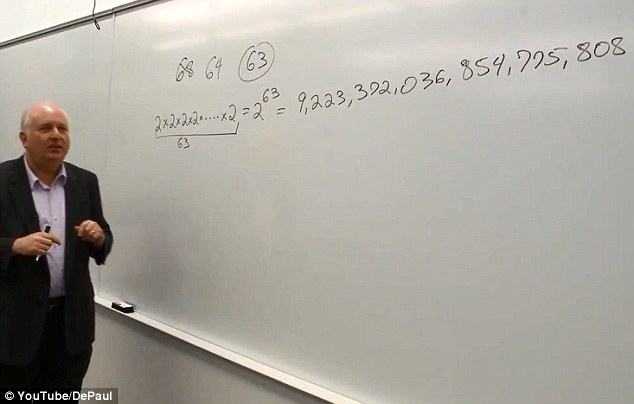 68 64 63
2×2×2×2×.....×2 = 2^63 = 9,223,372,036,854,775,808
63
© YouTube/DePaul